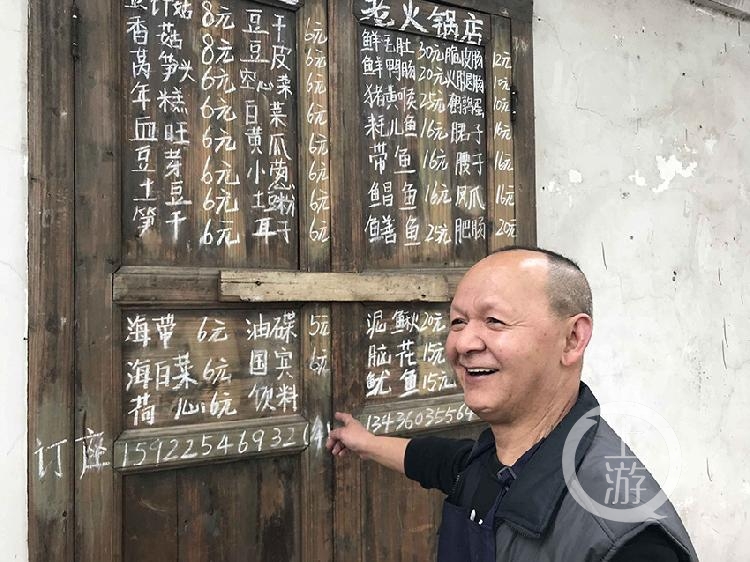 老火锅店
香菇 8元 豆皮 6元
莴笋头 6元 空心菜 6元
年糕 6元 白菜 6元
血旺 6元 黄瓜 6元
豆芽 6元 小葱 6元
土豆 6元 土
笋干 6元 耳子 6元
鲜毛肚 30元 12元
鲜鸭肠 20元 火腿肠 10元
猪黄喉 25元 鹌鹑蛋 10元
耗儿鱼 16元 子 16元
带鱼 16元 腰子 16元
鲳鱼 16元 凤爪 16元
鳝鱼 25元 肥肠 20元
海带 6元 油碟 5元
海白菜 6元 国宾 6元
荷心 6元 饮料
泥鳅 20元
脑花 15元
鱿鱼 15元
订座 15922546932
13436035564
上游